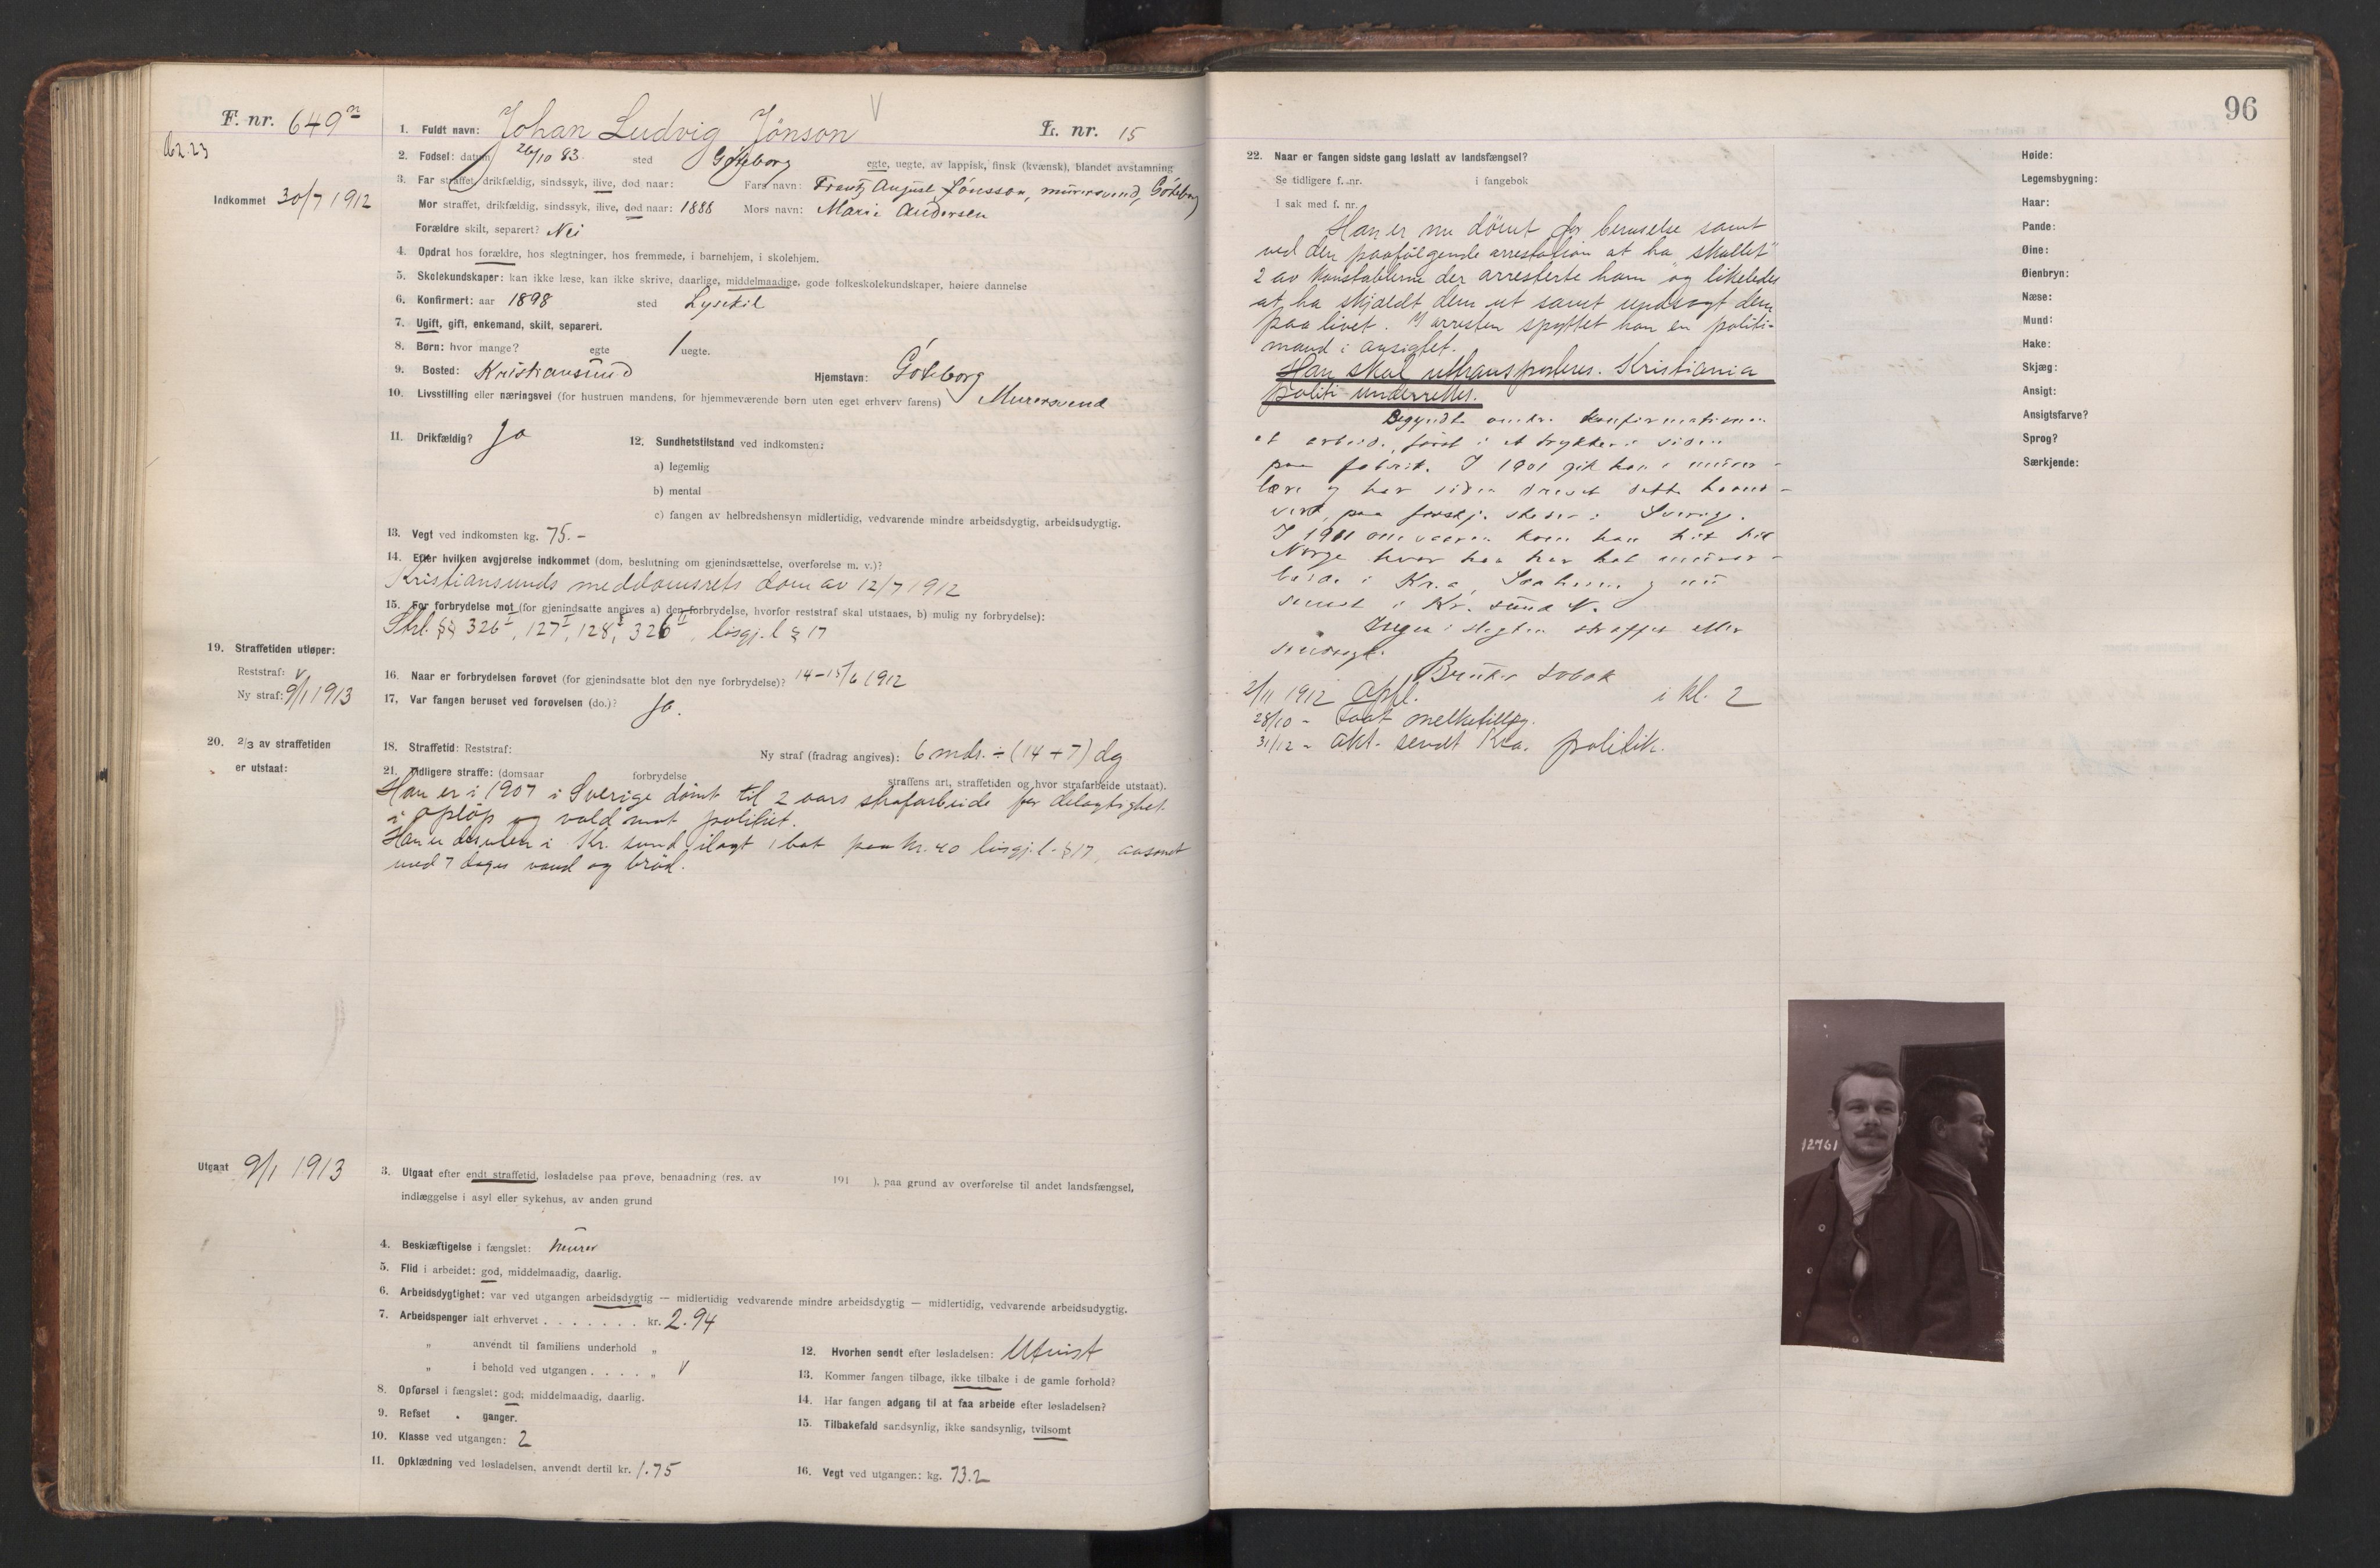 F. nr. 649
L. nr. 15
1. Fuldt navn: Johan Ludvig Jönson
2. Fødsel: datum 26/10 83. sted Göteborg egte, uegte, av lappisk, finsk (kvænsk), blandet avstamning
Indkommet 30/7 1912
3. Far straffet, drikfældig, sindssyk, ilive, død naar: Fars navn: Frantz August Jönsson, murersvend, Göteborg
Mor straffet, drikfældig, sindssyk, ilive, død naar: 1888 Mors navn: Marie Andersen
Forældre skilt, separert? Nei
4. Opdrat hos forældre, hos slegtninger, hos fremmede, i barnehjem, i skolehjem.
5. Skolekundskaper: kan ikke læse, kan ikke skrive, daarlige, middelmaadige, gode folkeskolekundskaper, høiere dannelse
6. Konfirmert: aar 1898 sted Lysekil
7. Ugift, gift, enkemand, skilt, separert.
8. Børn: hvor mange? egte 1 uegte.
9. Bosted: Kristiansund Hjemstavn: Göteborg
10. Livsstilling eller næringsvei (for hustruen mandens, for hjemmeværende børn uten eget erhverv farens) Murersvend
11. Drikfældig? Ja
12. Sundhetstilstand ved indkomsten:
a) legemlig
b) mental
c) fangen av helbredshensyn midlertidig, vedvarende mindre arbeidsdygtig, arbeidsudygtig.
13. Vegt ved indkomsten kg. 75.-
14. Efter hvilken avgjørelse indkommet (dom, beslutning om gjenindsættelse, overførelse m. v.)?
Kristiansunds meddomsrets dom av 12/7 1912
15. For forbrydelse mot (for gjenindsatte angives a) den forbrydelse, hvorfor reststraf skal utstaaes, b) mulig ny forbrydelse):
Strl. §§ 326 I, 127 I, 128 I, 326 II, løsgj. l § 17
19. Straffetiden utløper:
Reststraf: v
Ny straf: 9/1 1913
16. Naar er forbrydelsen forøvet (for gjenindsatte blot den nye forbrydelse)? 14-15/6 1912
17. Var fangen beruset ved forøvelsen (do.)? Ja.
20. 2/3 av straffetiden
er utstaat:
18. Straffetid: Reststraf: Ny straf (fradrag angives): 6 mdr. ÷ (14 + 7) dg
21. Tidligere straffe: (domsaar forbrydelse straffens art, straffetiden og hvor strafarbeide utstaat).
Han er i 1907 i Sverige dömt til 2 aars strafarbeide for delagtighet
i opløp og vold mot politiet.
Han er desuten i Kr. sund ilagt 1 bot paa kr. 40 løsgj. l. § 17, avsonet
med 7 dages vand og bröd.
Utgaat 9/1 1913
3. Utgaat efter endt straffetid, løsladelse paa prøve, benaadning (res. av 191 ), paa grund av overførelse til andet landsfængsel,
indlæggelse i asyl eller sykehus, av anden grund
4. Beskjæftigelse i fængslet: Murer
5. Flid i arbeidet: god, middelmaadig, daarlig.
6. Arbeidsdygtighet: var ved utgangen arbeidsdygtig — midlertidig vedvarende mindre arbeidsdygtig — midlertidig, vedvarende arbeidsudygtig.
7. Arbeidspenger ialt erhvervet . . . . . . . kr. 2.94
" anvendt til familiens underhold "
" i behold ved utgangen . . . . " v
8. Opførsel i fængslet: god; middelmaadig, daarlig.
9. Refset ganger.
10. Klasse ved utgangen: 2
11. Opklædning ved løsladelsen, anvendt dertil kr. 1.75
12. Hvorhen sendt efter løsladelsen: Utvist
13. Kommer fangen tilbage, ikke tilbake i de gamle forhold?
14. Har fangen adgang til at faa arbeide efter løsladelsen?
15. Tilbakefald sandsynlig, ikke sandsynlig, tvilsomt
16. Vegt ved utgangen: kg. 73.2
96
22. Naar er fangen sidste gang løslatt av landsfængsel?
Se tidligere f. nr. i fangebok
I sak med f. nr.
Han er nu dömt for beruselse samt
ved den paafölgende arrestation at ha "skallet"
2 av konstablerne der arresterte ham og likeledes
at ha skjældt dem ut samt undsagt dem
paa livet. I arresten spyttet han en politi-
mand i ansigtet.
Han skal uttransporteres. Kristiania
politi underrettes.
Begyndte omkr. konfirmationen
at arbeide, først i et trykkeri siden
paa fabrik. I 1901 gik han i murer-
lære og har siden drevet dette haand-
verk paa forskj. steder i Sverige.
I 1911 om vaaren kom han hit til
Norge hvor han har hat murer-
beide i Kr.a, og nu
senest i Kr. sund N.
Ingen i slegten straffet eller
sindssyk.
Bruker tobak
2/11 1912 Opfl. i kl. 2
28/10 - Faat melketillæg.
31/12 - Akt. sendt Kra. politik.
Høide:
Legemsbygning:
Haar:
Pande:
Øine:
Øienbryn:
Næse:
Mund:
Hake:
Skjæg:
Ansigt:
Ansigtsfarve?
Sprog?
Særkjende:
12761